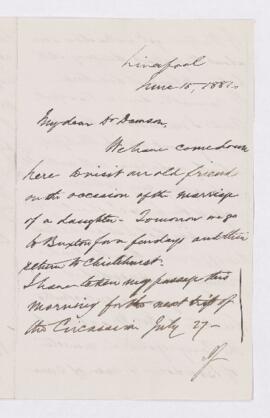 Liverpool
June 15, 1882
My dear Dr Dawson,
We have come down
here to visit an old friend
on the occasion of the marriage
of a daughter - Tomorrow we go
to Buxton for a few days and then
return to Chislehurst.
I have taken my passage this
morning for the next trip of
the Circassian July 27 -
If